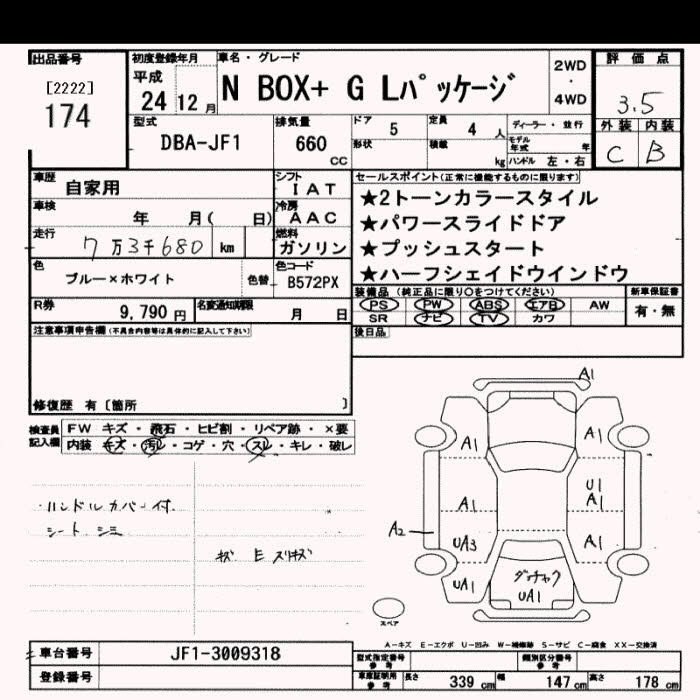 出品番号
[2222]
174
初度登録年月
平成
24 12 月
車名・グレード
N BOX+ G Lパッケージ
2WD
・
4WD
評価点
3.5
外装 内装
C B
型式
DBA-JF1
排気量
660
CC
ドア 5
定員 4 人
形状
積載 kg
ディーラー・並行
モデル年式 年
ハンドル 左・右
車歴 自家用
車検 年 月( 日)
走行 7万3千680 km
色 ブルー×ホワイト
色替
シフト
IAT
冷房
AAC
燃料
ガソリン
色コード
B572PX
セールスポイント(正常に機能するものに限ります)
★2トーンカラースタイル
★パワースライドドア
★プッシュスタート
★ハーフシェイドウインドウ
装備品(純正品に限り○をつけてください)
PS PW ABS エアB AW
SR ナビ TV カワ
新車保証書
有・無
R券 9,790 円
名変通知期限 月 日
後日品
注意事項申告欄(不具合内容等は具体的に記入して下さい)
修復歴 有〔箇所 〕
検査員記入欄
FW キズ・飛石・ヒビ割・リペア跡・×要
内装 キズ・汚レ・コゲ・穴・スレ・キレ・破レ
・ハンドルカバー付
シート シミ
キズ E スリキズ
A1
A1 A1
A1 U1 A1
A2
UA3 A1
UA1
UA1
スペア
A-キズ E-エクボ U-凹み W-補修跡 S-サビ C-腐食 XX-交換済
車台番号 JF1-3009318
登録番号
型式指定番号 参考
類別区分番号 参考
車庫証明用 参考
長さ 339 cm 幅 147 cm 高さ 178 cm